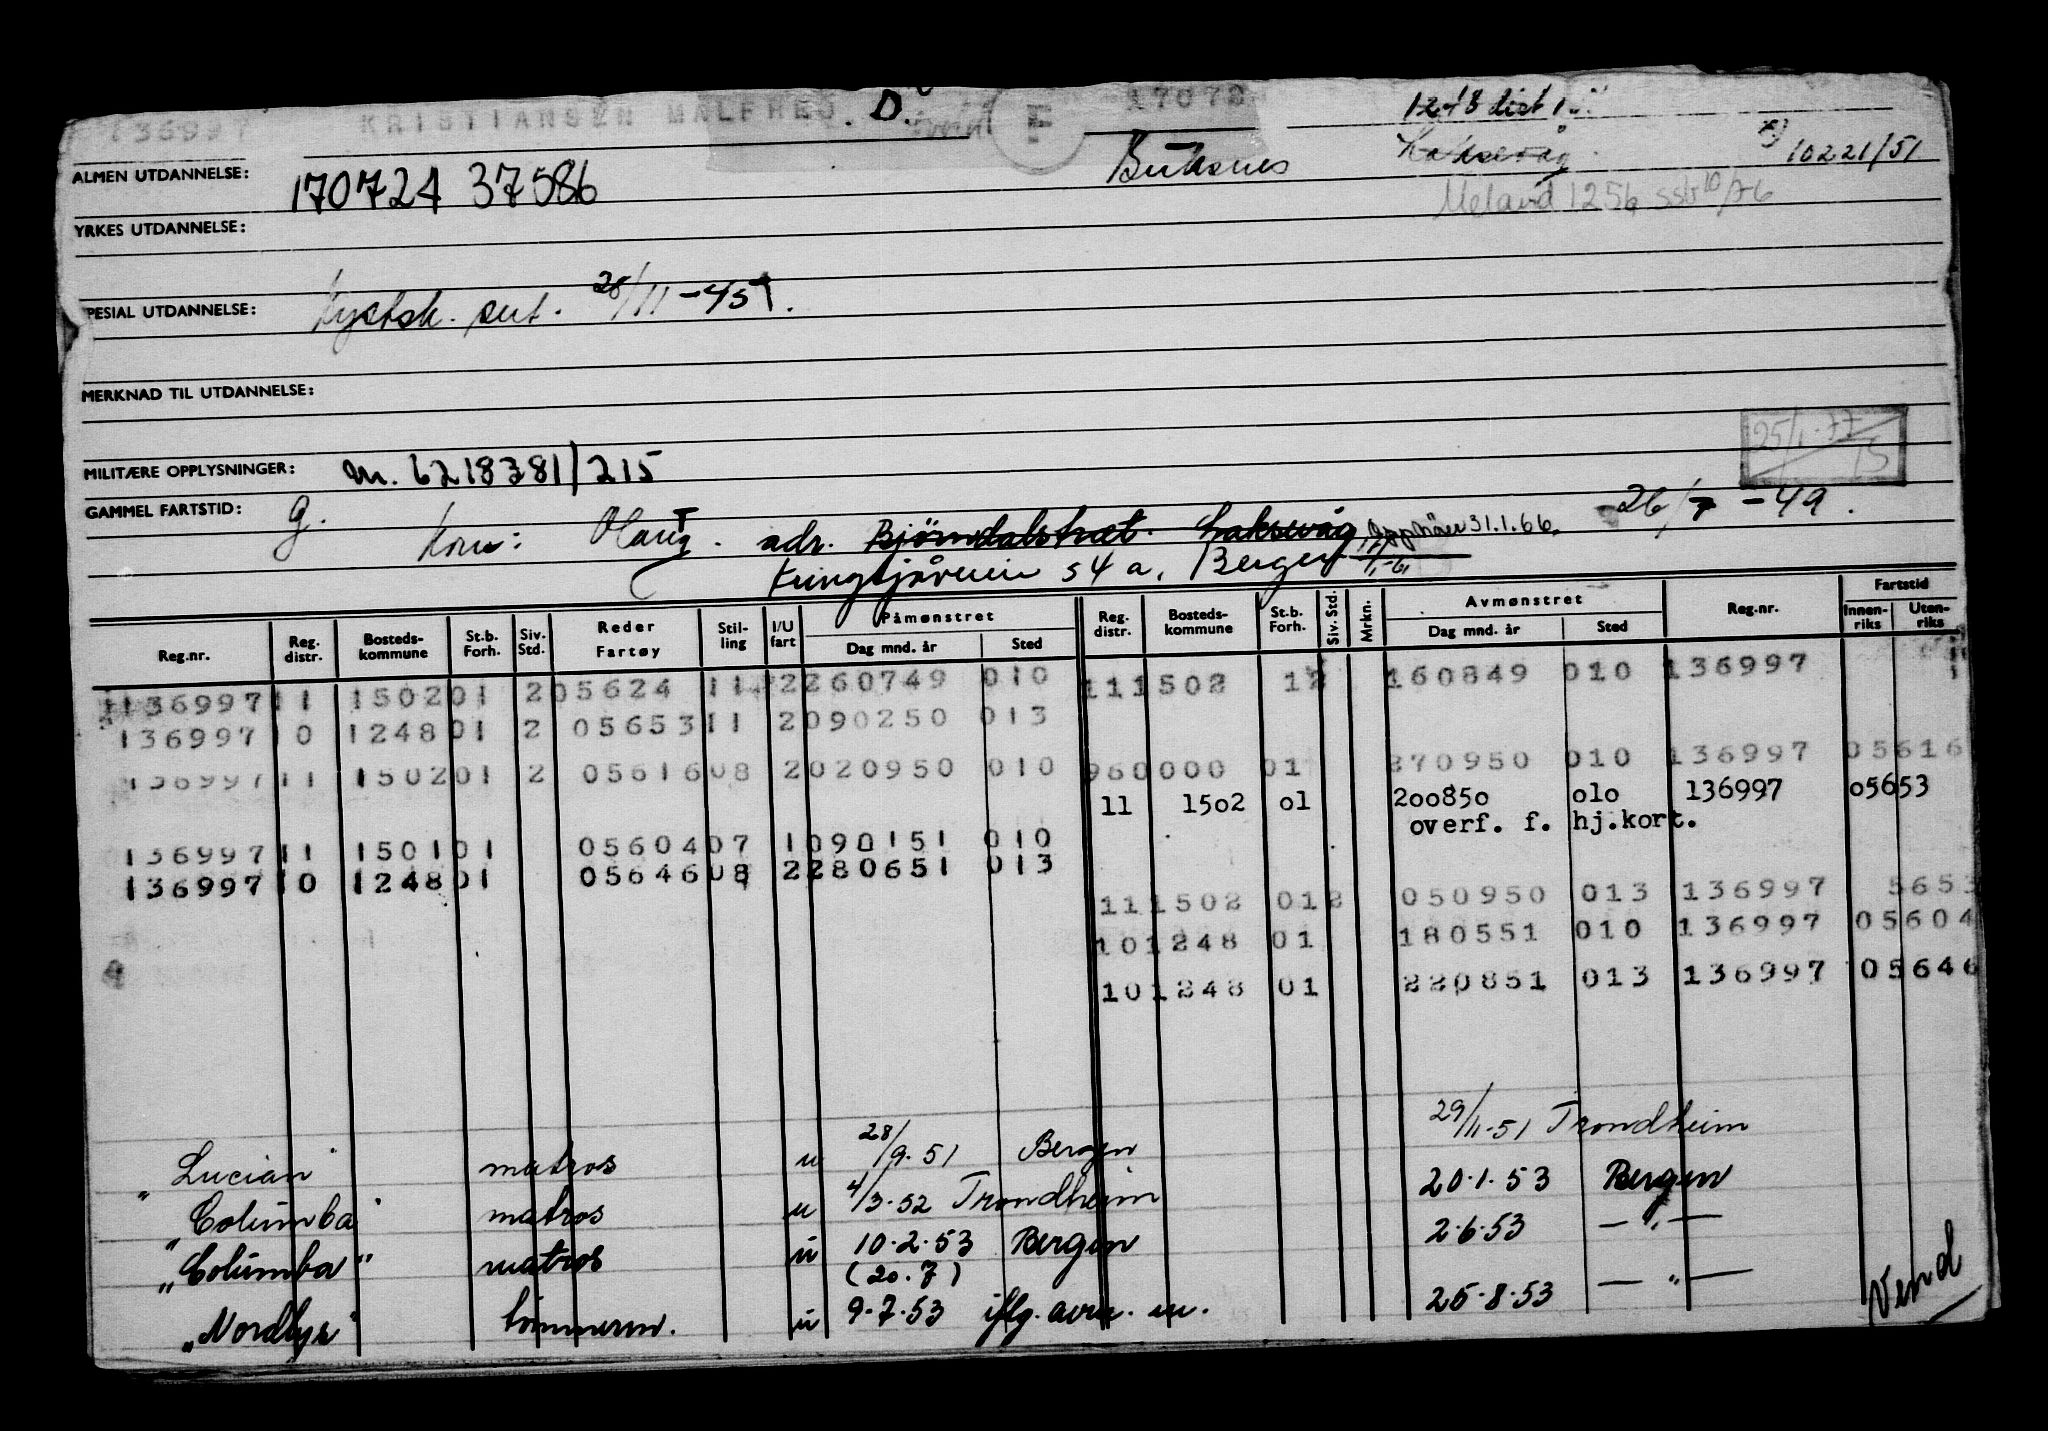 136997 KRISTIANSEN MALFRED. D. F 1248 dist 1
Buksnes Laksevåg 10221/51
ALMEN UTDANNELSE: 170724 37586
Meland 1256 sst 10/76
YRKES UTDANNELSE:
SPESIAL UTDANNELSE: Kystsk. sert. 28/11-45
MERKNAD TIL UTDANNELSE:
25/1-77
MILITÆRE OPPLYSNINGER: M. 6218381/215
GAMMEL FARTSTID: g. Kone: Olaug. adr. Björndalstræt. Laksevåg 31.1.66. 26/7-49.
54 a, Bergen
Påmønstret Avmønstret Fartstid
Reg.nr. Reg. distr. Bosteds-kommune St.b. Forh. Siv. Std. Reder Fartøy Stil-ling I/U fart Dag mnd. år Sted Reg. distr. Bosteds-kommune St.b. Forh. Siv. Std. Mrkn. Dag mnd. år Sted Reg.nr. Innen-riks Uten-riks
136997 11 1502 01 2 05624 11 2 260749 010 11 1502 12 160849 010 136997
136997 10 1248 01 2 05653 11 2 090250 013
136997 11 1502 01 2 05616 08 2 020950 010 960000 01 270950 010 136997 05616
11 15o2 o1 2oo85o o1o 136997 o5653
overf. f. hj.kort.
136997 11 1501 01 05604 07 1 090151 010
136997 10 1248 01 05646 08 2 280651 013
11 1502 01 2 050950 013 136997 5653
10 1248 01 180551 010 136997 05604
10 1248 01 220851 013 136997 05646
"Lucian" matros u 28/9.51 Bergen 29/11.51 Trondheim
"Columba" matros u 4/3.52 Trondheim 20.1.53 Bergen
"Columba" matros u 10.2.53 Bergen 2.6.53 — " —
(20.7)
"Nordlys" tömmerm. u 9.7.53 iflg. avm. m. 25.8.53 — " —
Vend